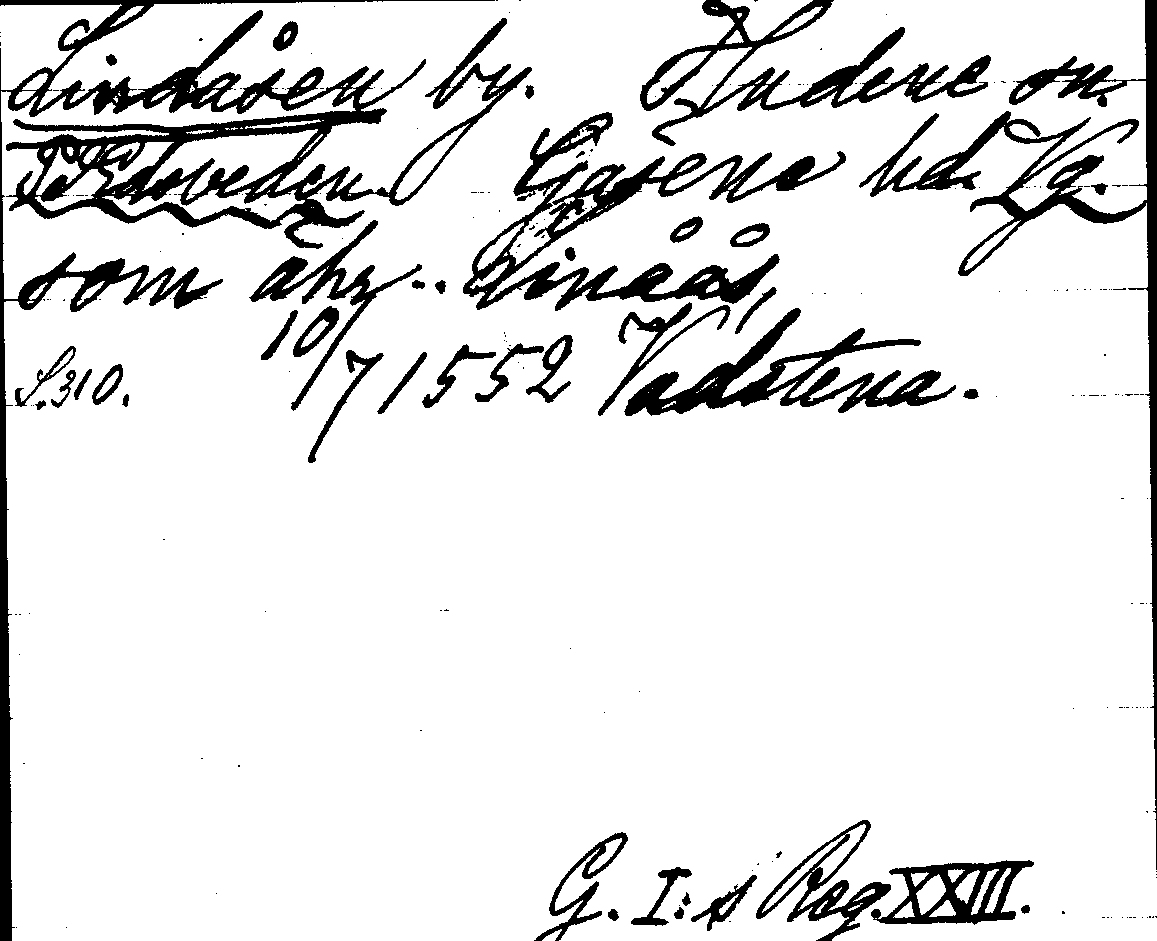 Lindåsen by. Hudene sn.
Gäsene hd. Vg.
som åhr .. Linåås,
S. 310. 10/7 1552 Vadstena.
G. I:s Reg. XXIII.